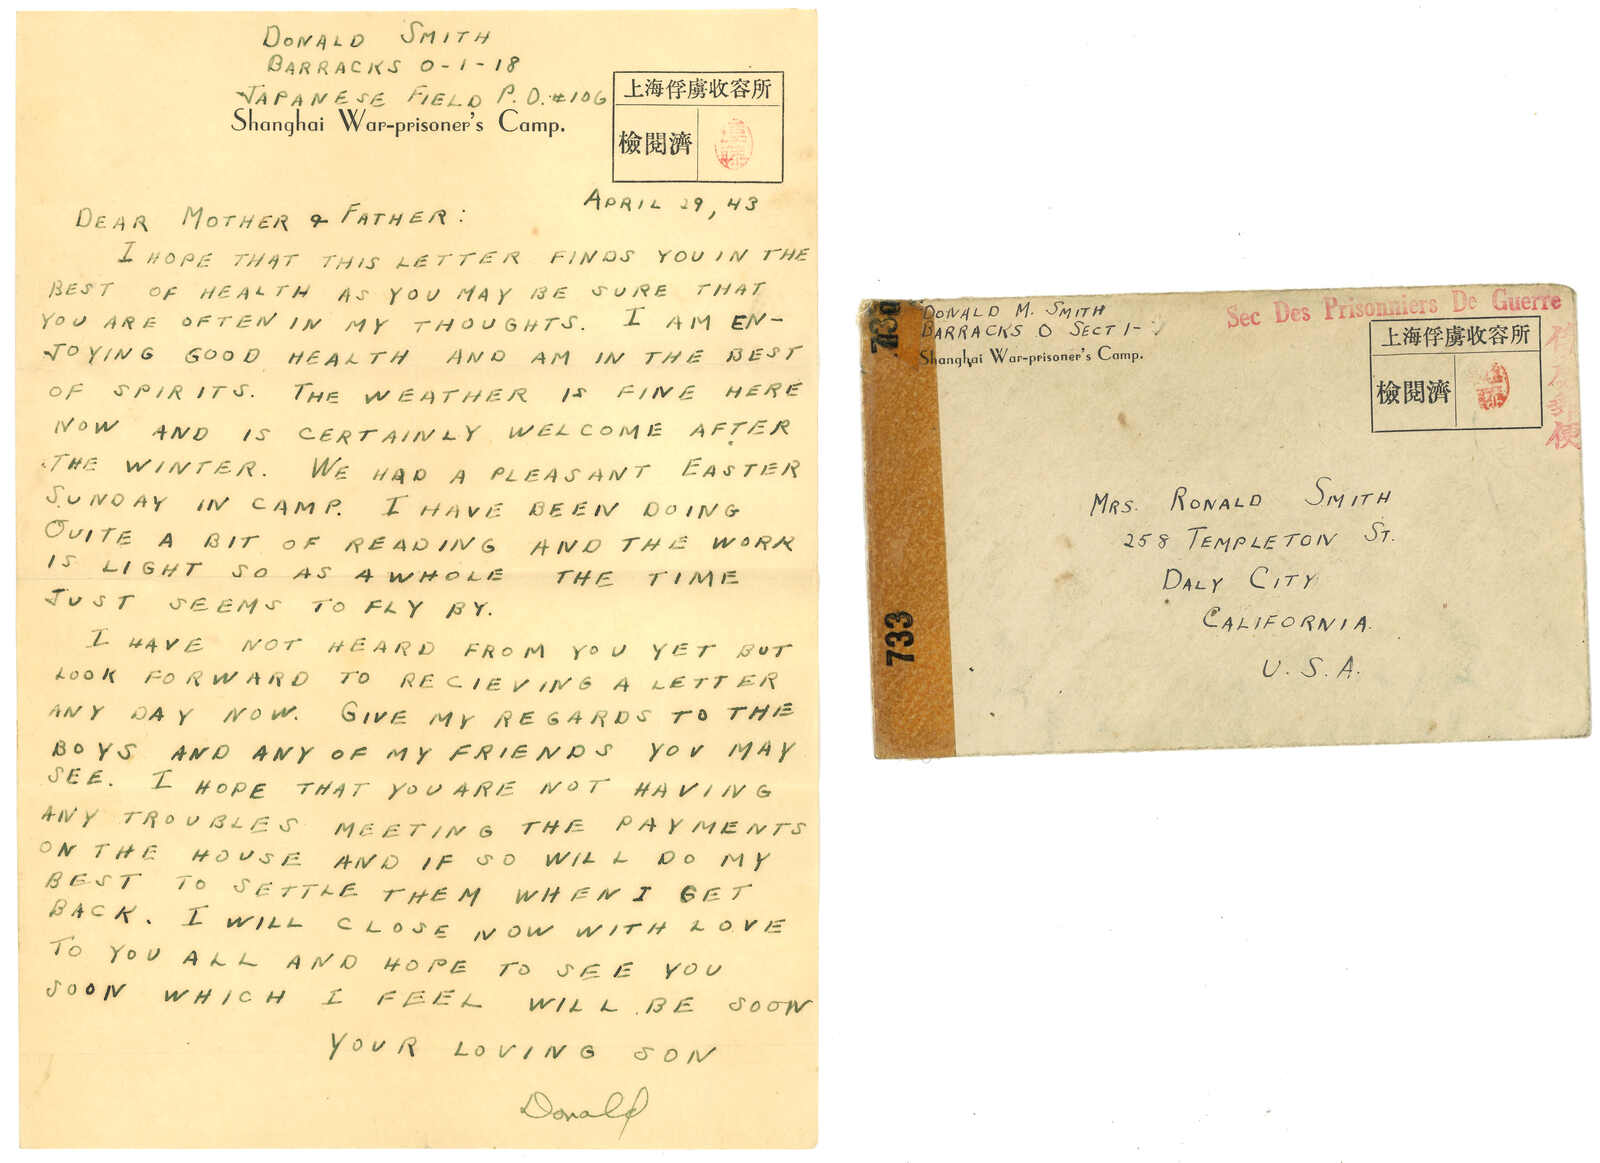 DONALD SMITH
BARRACKS 0-1-18
JAPANESE FIELD P.O. #106
Shanghai War-prisoner's Camp.
上海俘虜收容所
檢閱濟
APRIL 29, 43
DEAR MOTHER & FATHER:
I HOPE THAT THIS LETTER FINDS YOU IN THE
BEST OF HEALTH AS YOU MAY BE SURE THAT
YOU ARE OFTEN IN MY THOUGHTS. I AM EN-
JOYING GOOD HEALTH AND AM IN THE BEST
OF SPIRITS. THE WEATHER IS FINE HERE
NOW AND IS CERTAINLY WELCOME AFTER
THE WINTER. WE HAD A PLEASANT EASTER
SUNDAY IN CAMP. I HAVE BEEN DOING
QUITE A BIT OF READING AND THE WORK
IS LIGHT SO AS A WHOLE THE TIME
JUST SEEMS TO FLY BY.
I HAVE NOT HEARD FROM YOU YET BUT
LOOK FORWARD TO RECIEVING A LETTER
ANY DAY NOW. GIVE MY REGARDS TO THE
BOYS AND ANY OF MY FRIENDS YOU MAY
SEE. I HOPE THAT YOU ARE NOT HAVING
ANY TROUBLES MEETING THE PAYMENTS
ON THE HOUSE AND IF SO WILL DO MY
BEST TO SETTLE THEM WHEN I GET
BACK. I WILL CLOSE NOW WITH LOVE
TO YOU ALL AND HOPE TO SEE YOU
SOON WHICH I FEEL WILL BE SOON
YOUR LOVING SON
Donald
DONALD M. SMITH
BARRACKS O SECT 1-
Shanghai War-prisoner's Camp.
Sec Des Prisonniers De Guerre
上海俘虜收容所
檢閱濟
俘虜郵便
733
MRS. RONALD SMITH
258 TEMPLETON ST.
DALY CITY
CALIFORNIA.
U.S.A.